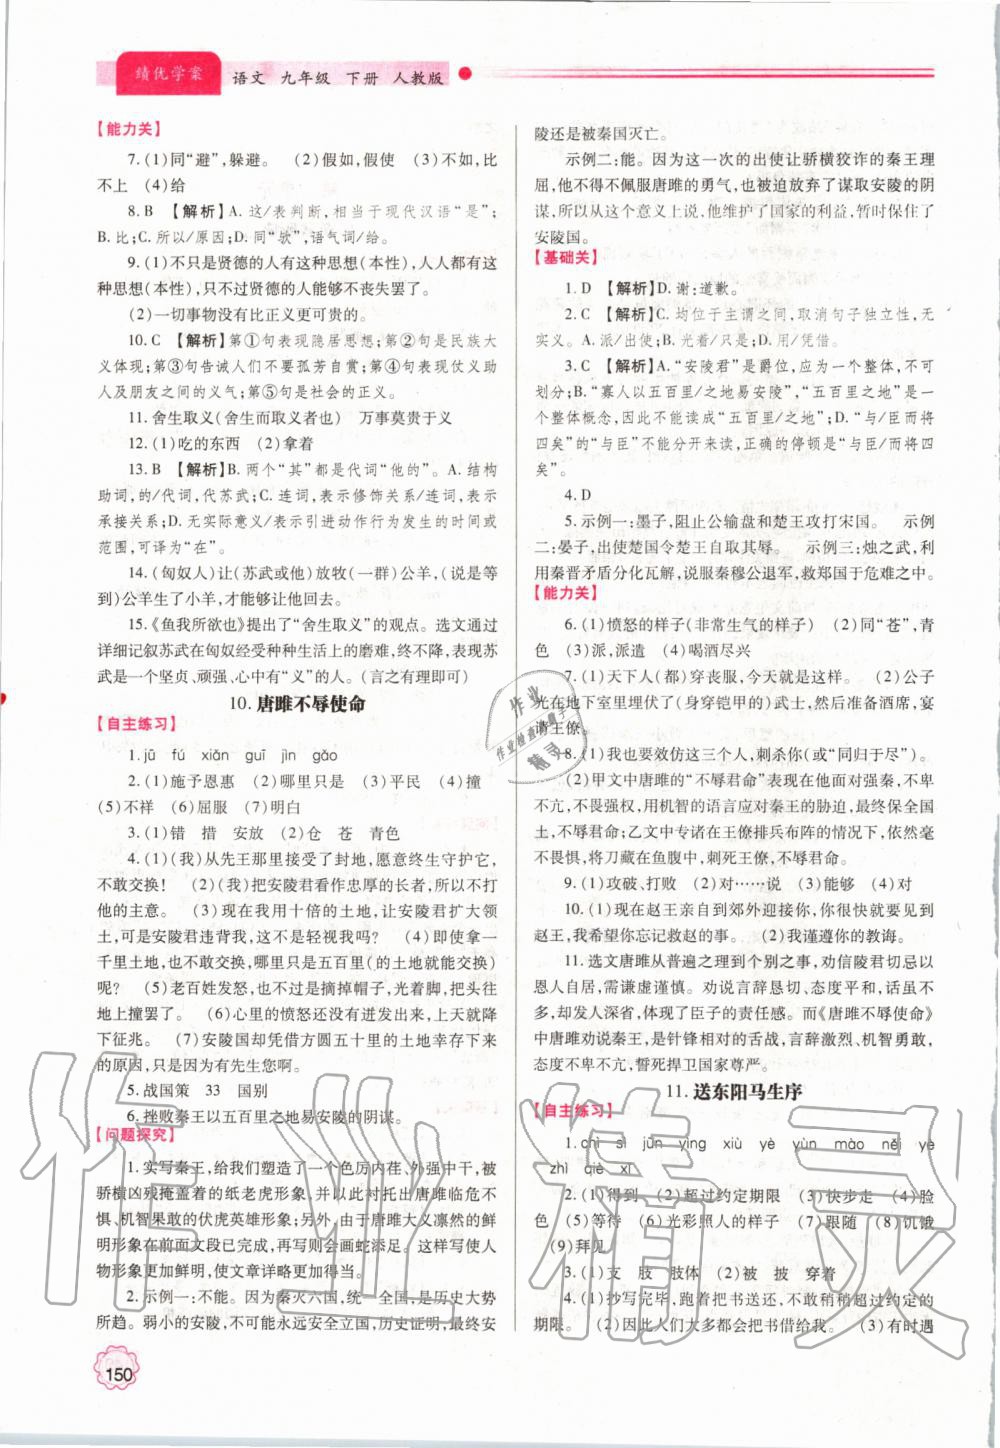 绩优学案 语文 九年级 下册 人教版
【能力关】
7.(1)同“避”,躲避。 (2)假如,假使 (3)不如,比
不上 (4)给
8.B 【解析】A.这/表判断,相当于现代汉语“是”;
B.比;C.所以/原因;D.同“欤”,语气词/给。
9.(1)不只是贤德的人有这种思想(本性),人人都有这
种思想(本性),只不过贤德的人能够不丧失罢了。
(2)一切事物没有比正义更可贵的。
10.C 【解析】第①句表现隐居思想;第②句是民族大
义体现;第③句告诫人们不要孤芳自赏;第④句表现仗义助
人及朋友之间的义气;第⑤句是社会的正义。
11.舍生取义(舍生而取义者也) 万事莫贵于义
12.(1)吃的东西 (2)拿着
13.B 【解析】B.两个“其”都是代词“他的”。A.结构
助词,的/代词,代苏武;C.连词,表示修饰关系/连词,表示
承接关系;D.无实际意义/表示引进动作行为发生的时间或
范围,可译为“在”。
14.(匈奴人)让(苏武或他)放牧(一群)公羊,(说是等
到)公羊生了小羊,才能够让他回去。
15.《鱼我所欲也》提出了“舍生取义”的观点。选文通过
详细记叙苏武在匈奴经受种种生活上的磨难,终不降,表现苏
武是一个坚贞、顽强、心中有“义”的人。(言之有理即可)
10.唐雎不辱使命
【自主练习】
1.jū fú xiǎn guī jìn gǎo
2.(1)施予恩惠 (2)哪里只是 (3)平民 (4)撞
(5)不祥 (6)屈服 (7)明白
3.(1)错 措 安放 (2)仓 苍 青色
4.(1)(我)从先王那里接受了封地,愿意终生守护它,
不敢交换! (2)(我)把安陵君看作忠厚的长者,所以不打
他的主意。 (3)现在我用十倍的土地,让安陵君扩大领
土,可是安陵君违背我,这不是轻视我吗? (4)即使拿一
千里土地,也不敢交换,难道只是五百里(的土地就能交换)
呢? (5)老百姓发怒,也不过是摘掉帽子,光着脚,把头往
地上撞罢了。 (6)心里的愤怒还没发作出来,上天就降
下征兆。 (7)安陵国却凭借方圆五十里的土地幸存下来
的原因,只是因为有先生您啊。
5.战国策 33 国别
6.挫败秦王以五百里之地易安陵的阴谋。
【问题探究】
1.实写秦王,给我们塑造了一个色厉内荏、外强中干,被
骄横凶残掩盖着的纸老虎形象,并以此衬托出唐雎临危不
惧、机智果敢的伏虎英雄形象;另外,由于唐雎大义凛然的鲜
明形象在前面文段已完成,再写则有些画蛇添足。这样写使人
物形象更加鲜明,使文章详略更加得当。
2.示例一:不能。因为秦灭六国,统一全国,是历史大势
所趋。弱小的安陵,不可能永远安全立国,历史证明,最终安
陵还是被秦国灭亡。
示例二:能。因为这一次的出使让骄横狡诈的秦王理
屈,他不得不佩服唐雎的勇气,也被迫放弃了谋取安陵的阴
谋,所以从这个意义上说,他维护了国家的利益,暂时保住了
安陵国。
【基础关】
1.D 【解析】D.谢:道歉。
2.C 【解析】C.均位于主谓之间,取消句子独立性,无
实义。A.派/出使;B.光着/只是;D.用/凭借。
3.C 【解析】A.“安陵君”是爵位,应为一个整体,不可
划分;B.“寡人以五百里/之地易安陵”,“五百里之地”是一
个整体概念,因此不能读成“五百里/之地”;D.“与/臣而将
四矣”的“与臣”不能分开来读,正确的停顿是“与臣/而将四
矣”。
4.D
5.示例一:墨子,阻止公输盘和楚王攻打宋国。 示例
二:晏子,出使楚国令楚王自取其辱。 示例三:烛之武,利
用秦晋矛盾分化瓦解,说服秦穆公退军,救郑国于危难之中。
【能力关】
6.(1)愤怒的样子(非常生气的样子) (2)同“苍”,青
色 (3)派,派遣 (4)喝酒尽兴
7.(1)天下人(都)穿丧服,今天就是这样。 (2)公子
光在地下室里埋伏了(身穿铠甲的)武士,然后准备酒席,宴
请王僚。
8.(1)我也要效仿这三个人,刺杀你(或“同归于尽”)。
(2)甲文中唐雎的“不辱君命”表现在他面对强秦,不卑
不亢,不畏强权,用机智的语言应对秦王的胁迫,最终保全国
土,不辱君命;乙文中专诸在王僚排兵布阵的情况下,依然毫
不畏惧,将刀藏在鱼腹中,刺死王僚,不辱君命。
9.(1)攻破、打败 (2)对……说 (3)能够 (4)对
10.(1)现在赵王亲自到郊外迎接你,你很快就要见到
赵王,我希望你忘记救赵的事。 (2)我谨遵你的教诲。
11.选文唐雎从普遍之理到个别之事,劝信陵君切忌以
恩人自居,需谦虚谨慎。劝说言辞恳切、态度平和,话虽不
多,却发人深省,体现了臣子的责任感。而《唐雎不辱使命》
中唐雎劝说秦王,是针锋相对的舌战,言辞激烈、机智勇敢,
态度不卑不亢,誓死捍卫国家尊严。
11.送东阳马生序
【自主练习】
1.chì sì jūn yǐng xiù yè yùn mào něi yè
zhì qiè xī
2.(1)得到 (2)超过约定期限 (3)快步走 (4)脸
色 (5)等待 (6)光彩照人的样子 (7)跟随 (8)饥饿
(9)拜见
3.(1)支 肢 肢体 (2)被 披 穿着
4.(1)抄写完毕,跑着把书送还,不敢稍稍超过约定的
期限。 (2)因此人们大多都会拿书借给我。 (3)有时遇
150
作业精灵
作业
作业检查小帮手
精灵